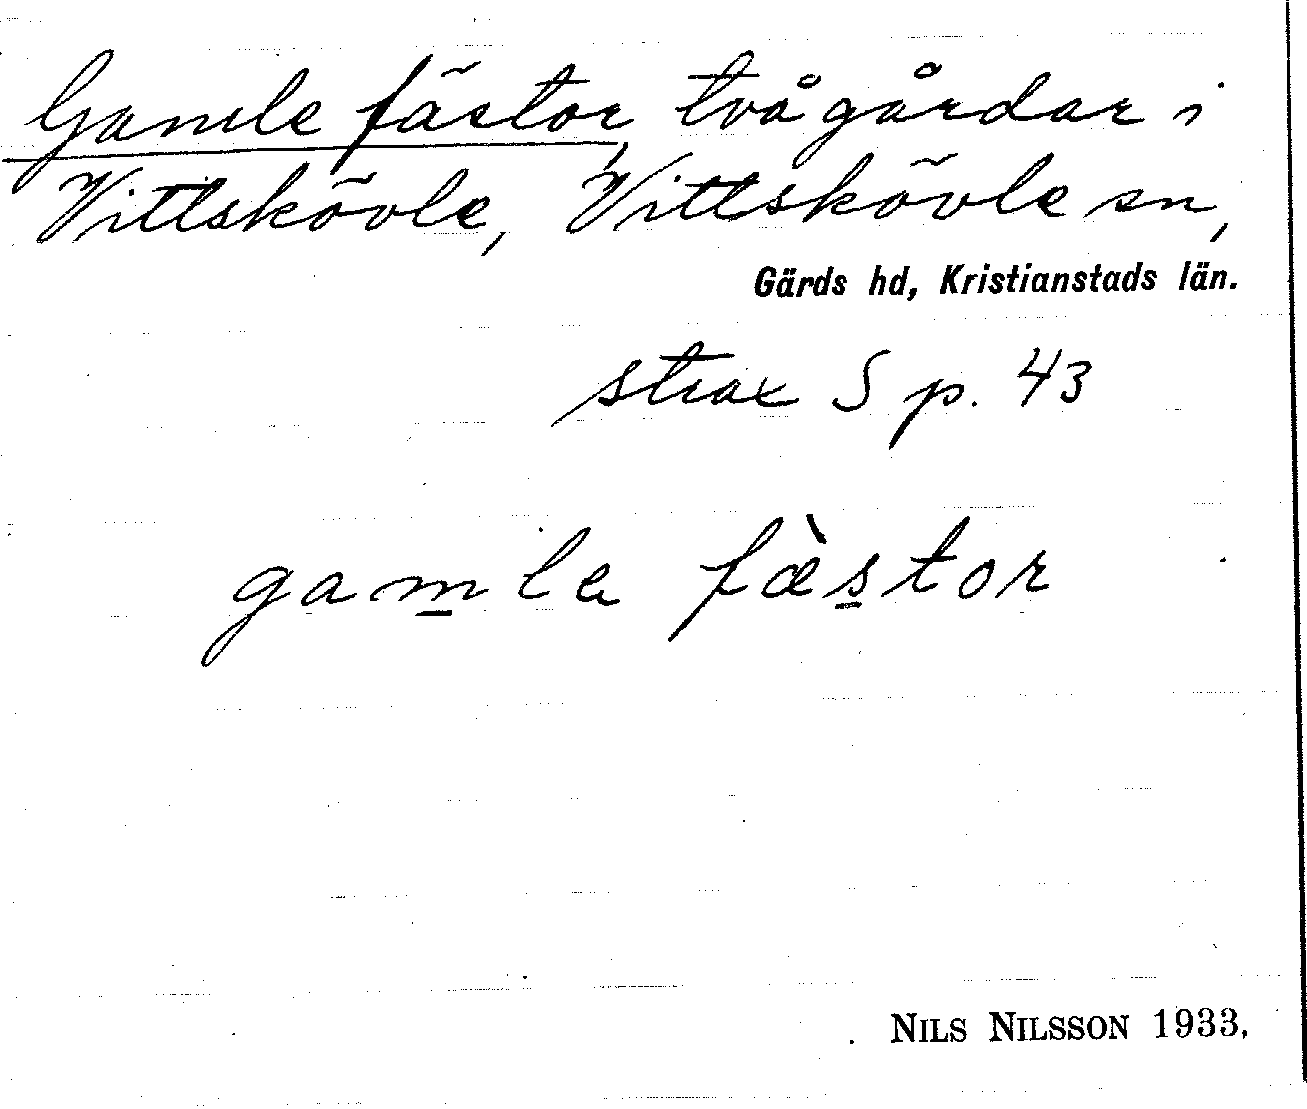 Gamle fästor, två gårdar i
Vittskövle, Vittskövle sn,
Gärds hd, Kristianstads län.
strax S p. 43
gamle fæ̀stor
NILS NILSSON 1933.